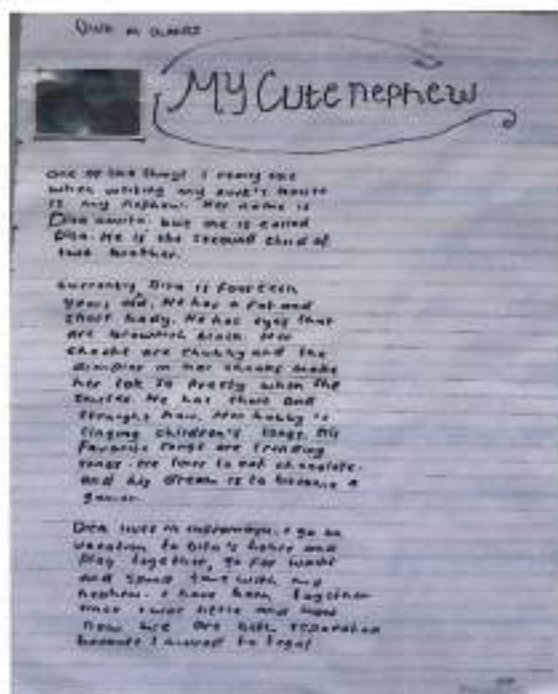 MY Cute nephew
One of the things I really like
when visiting my aunt's house
is my nephew. Her name is
but she is called
Dita. He is the second child of
two brother.
Currently Dita is fourteen
years old. He has a fat and
short body. He has eyes that
are brownish black. Her
cheeks are chubby and the
dimples in her cheeks make
her look so pretty when she
smiles. He has short and
straight hair. Her hobby is
singing children's songs. His
favorite songs are trending
songs. He likes to eat chocolate.
and his dream is to become a
Dita lives in Indramayu. I go on
vacation to Dita's house and
play together, go for walks
and spend time with my
nephew. I have been together
since I was little and
now we are both
because I moved to Tegal